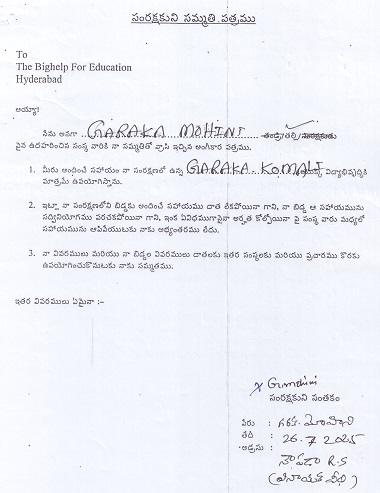 సంరక్షకుని సమ్మతి పత్రము
To
The Bighelp For Education
Hyderabad
అయ్యా:
నేను అనగా GARAKA MOHINI తండ్రి/తల్లి/సంరక్షకుడు
పైన ఉదహరించిన సంస్థ వారికి నా సమ్మతితో వ్రాసి ఇచ్చిన అంగీకార పత్రము.
1. మీరు అందించే సహాయం నా సంరక్షణలో ఉన్న GARAKA KOMALI విద్యాభివృద్ధికి
మాత్రమే ఉపయోగిస్తాను.
2. ఇట్లా నా సంరక్షణలోని బిడ్డకు అందించే సహాయము దాత లేకపోయినా గాని, నా బిడ్డ ఆ సహాయమును
సద్వినియోగము పరచకపోయినా గాని, ఇంక ఏవిధముగానైనా అర్హత కోల్పోయినా పై సంస్థ వారు మధ్యలో
సహాయమును ఆపివేయుటకు నాకు అభ్యంతరము లేదు.
3. నా వివరములు మరియు నా బిడ్డల వివరములు దాతలకు ఇతర సంస్థలకు మరియు ప్రచారము కొరకు
ఉపయోగించుకొనుటకు నాకు సమ్మతము.
ఇతర వివరములు ఏమైనా :-
x G.mohini
సంరక్షకుని సంతకం
పేరు : గరక మోహిని
తేదీ : 26.7.2025
అడ్రసు : R.S